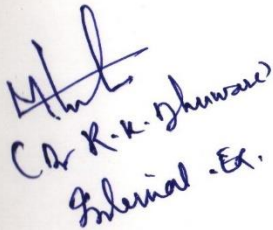 (Dr R.K. Dhuware)
Internal .Ex.